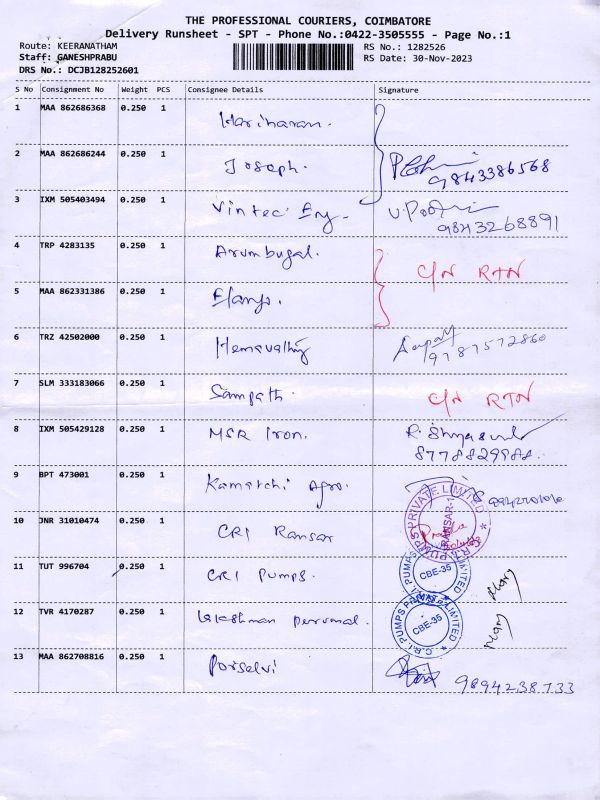 THE PROFESSIONAL COURIERS, COIMBATORE
Delivery Runsheet - SPT - Phone No.:0422-3505555 - Page No.:1
Route: KEERANATHAM
RS No.: 1282526
Staff: GANESHPRABU
RS Date: 30-Nov-2023
DRS No.: DCJB128252601
S No Consignment No Weight PCS Consignee Details Signature
1 MAA 862686368 0.250 1 Hariharan.
2 MAA 862686244 0.250 1 Joseph. 9843386568
3 IXM 505403494 0.250 1 Vintec Eng. 9843268891
4 TRP 4283135 0.250 1 Arumbugal. C/N RTN
5 MAA 862331386 0.250 1
6 TRZ 42502000 0.250 1 Hemavathy 9787572860
7 SLM 333183066 0.250 1 Sampath. C/N RTN
8 IXM 505429128 0.250 1 MSR Iron. 8778829988.
9 BPT 473001 0.250 1 Kamatchi Agro.
10 JNR 31010474 0.250 1 CRI Ransar
C.R.I. PUMPS PRIVATE LIMITED
RANSAR-1
11 TUT 996704 0.250 1 CRI Pumps.
C.R.I. PUMPS PRIVATE LIMITED
CBE-35
12 TVR 4170287 0.250 1 Lakshman perumal.
C.R.I. PUMPS PRIVATE LIMITED
CBE-35
13 MAA 862708816 0.250 1 Porselvi 9894238733